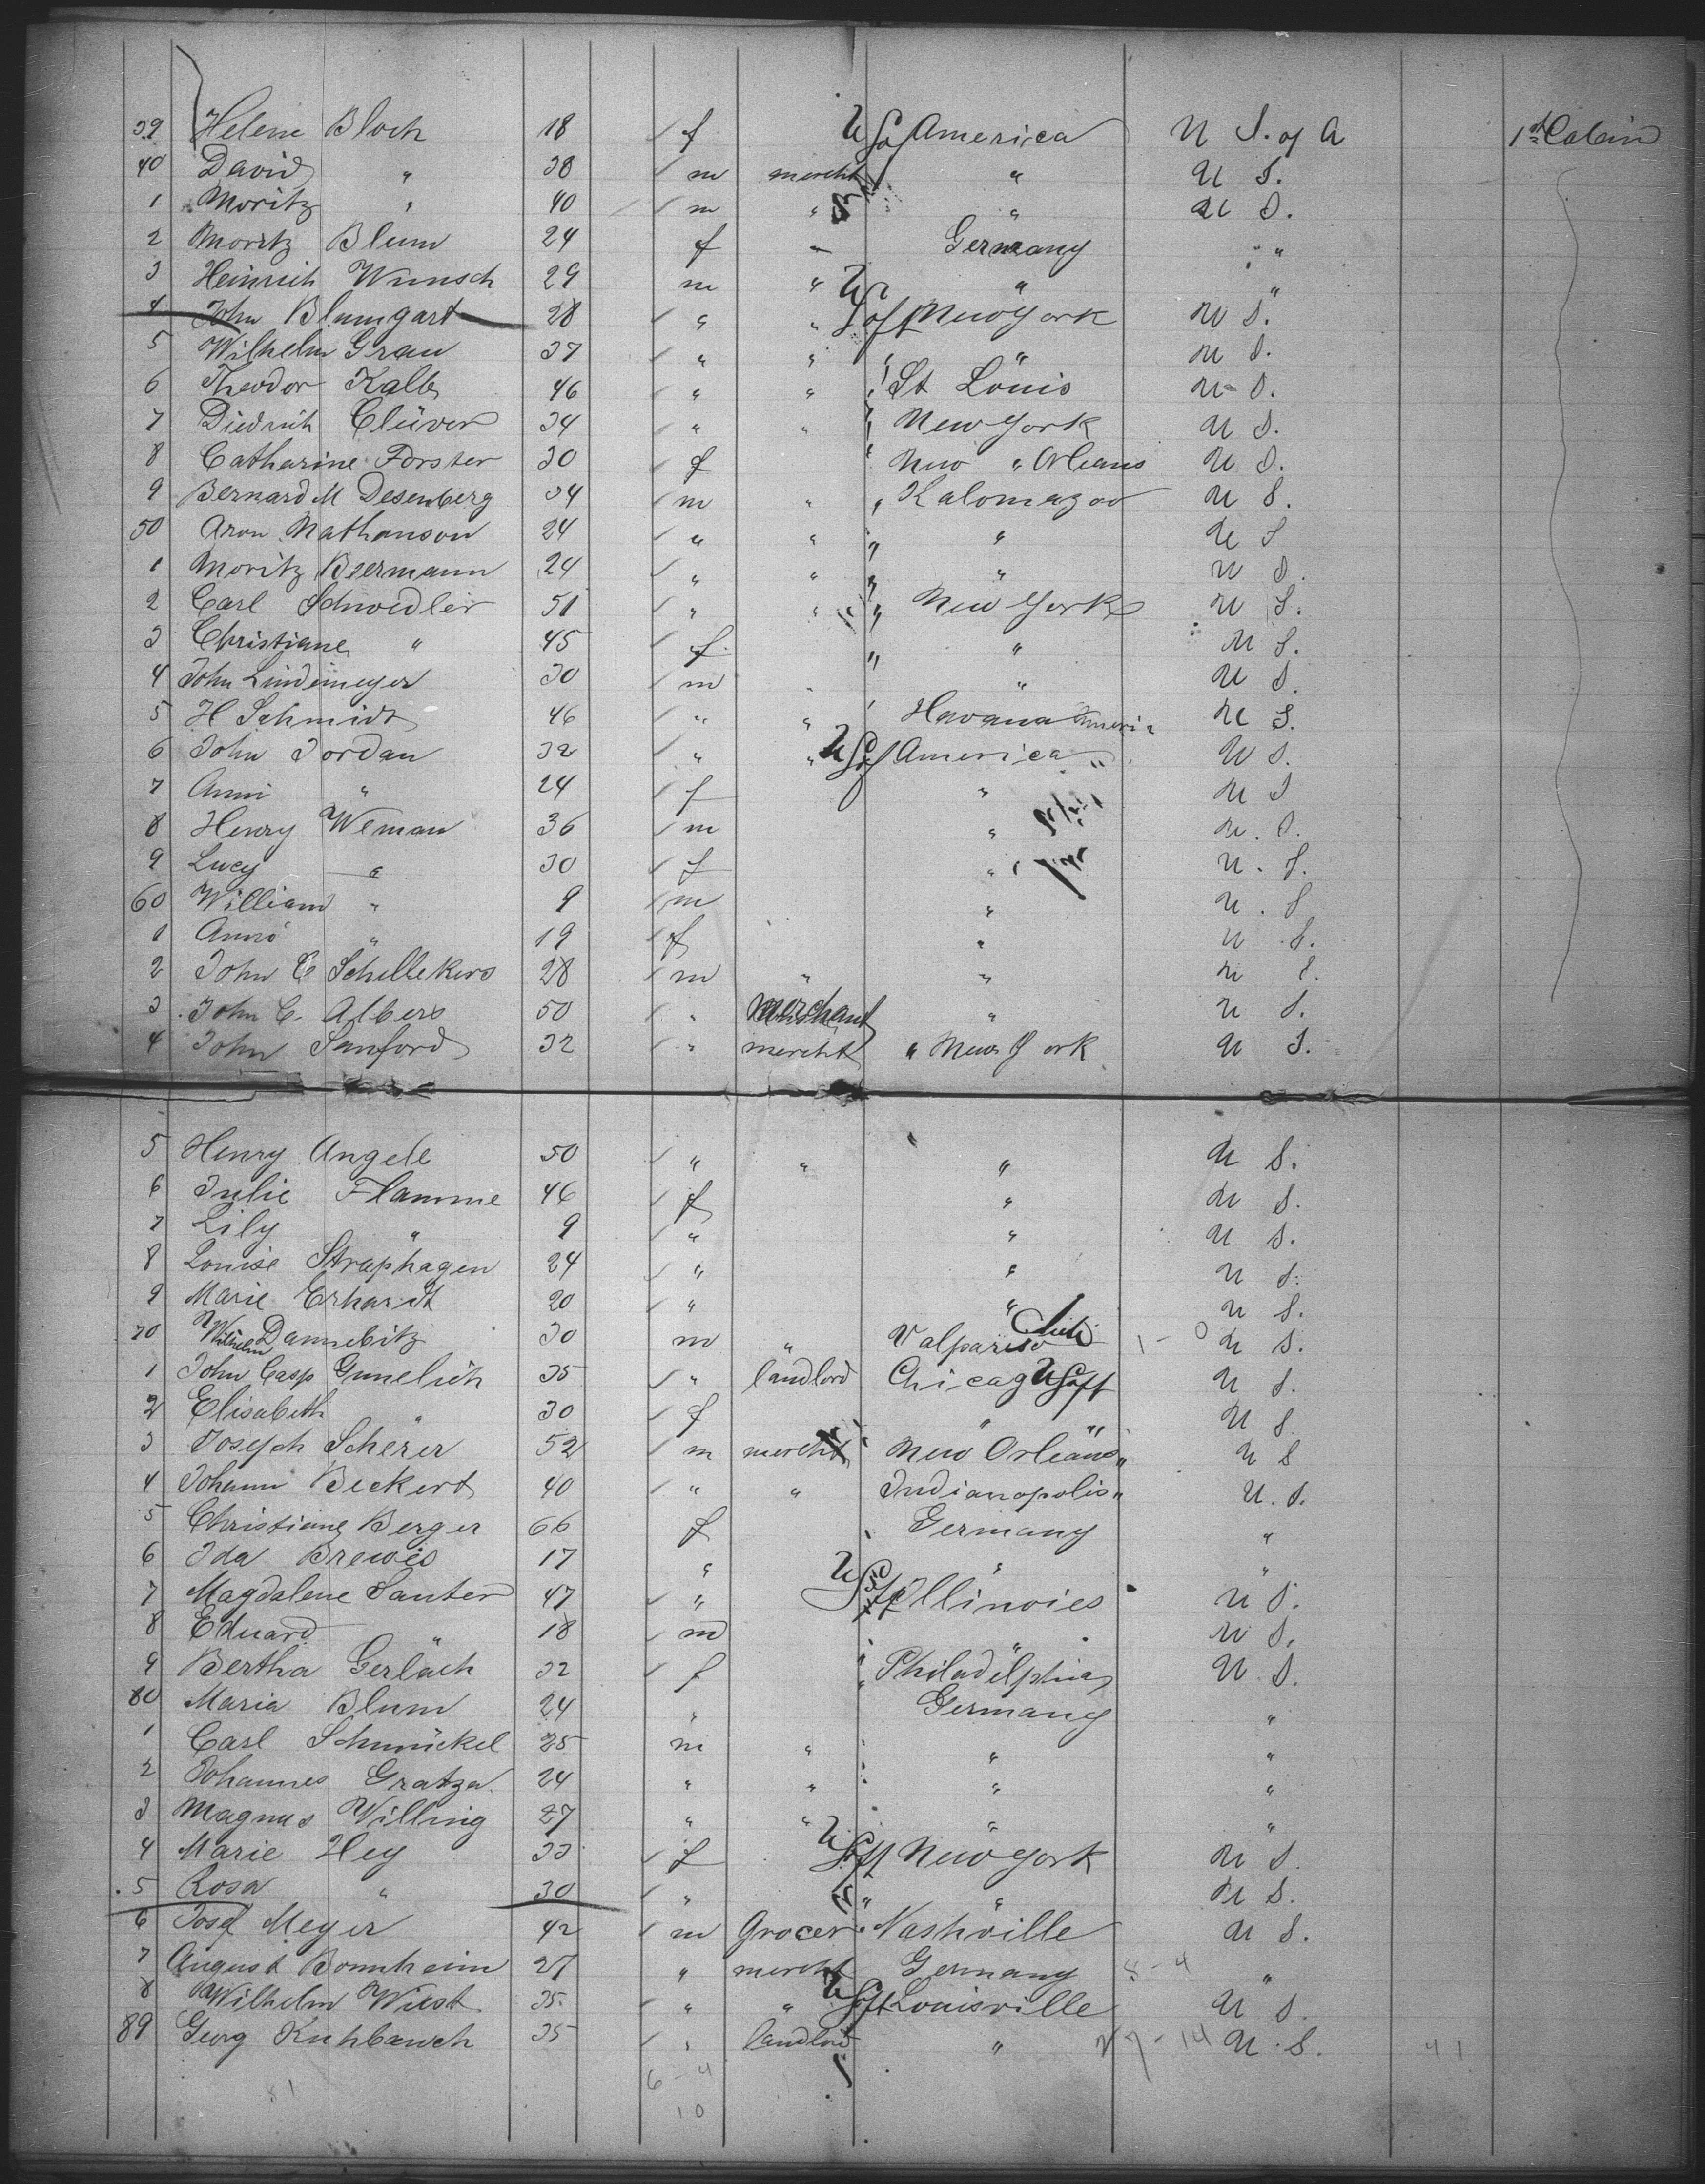 39 Helene Bloch 18 f U S of America U S. of A 1st Cabin
40 David " 38 m mercht " U S.
1 Moritz " 40 m " " U S.
2 Moritz Blum 24 f - Germany "
3 Heinrich Wunsch 29 m " " "
4 John Blumgart 28 " " U S of New York U S.
5 Wilhelm Grau 37 " " " U S.
6 Theodor Kalb 46 " " St Louis U S.
7 Diedrich Clüver 34 " " New York U S.
8 Catharine Forster 30 f New Orleans U S.
9 Bernard M Desenberg 34 m " " Kalomazoo U S.
50 Aron Nathanson 24 " " " " U S
1 Moritz Beermann 24 " " " " U S.
2 Carl Schwedler 51 " " " New York U S.
3 Christiane " 45 f " " U S.
4 John Lindemeyer 30 m " " U S.
5 H Schmidt 46 " " Havana Ameri U S.
6 John Jordan 32 " " U S of America U S.
7 Anni " 24 f " U S
8 Henry Weman 36 m " U. S.
9 Lucy " 30 f " U. S.
60 William " 9 m " U. S
1 Anna " 19 f " U. S.
2 John C Schellekens 28 m " " U S.
3 John C. Albers 50 " Merchant " U S.
4 John Sanford 32 " mercht " New York U S.
5 Henry Angele 50 " " " U S.
6 Julie Flamme 46 f " U S.
7 Lily " 9 " " U S.
8 Louise Straphagen 24 " " U S.
9 Marie Erhardt 20 " " U S.
70 Wilhelm Dannebitz 30 m " Valpariso Chili 1 - 0 U S.
1 John Casp Gunelich 35 " landlord Chicag U S of U S.
2 Elisabeth " 30 f " " U S
3 Joseph Scherer 52 m mercht New Orleans " U S
4 Johann Beckert 40 " " Indianapolis " U. S.
5 Christiane Berger 66 f Germany "
6 Ida Brewes 17 " " "
7 Magdalene Sauter 47 " U S of Illinoies U S.
8 Eduard " 18 m " U S.
9 Bertha Gerlach 32 f Philadelphia U S.
80 Maria Blum 24 " Germany "
1 Carl Schmückel 25 m " " "
2 Johannes Gratza 24 " " " "
3 Magnus Willing 27 " " " "
4 Marie Hey 33 f U S of New York U S.
5 Rosa " 30 " " " U S.
6 Josef Meyer 42 m Grocer " Nashville U S.
7 August Bonnheim 27 " mercht Germany 8 - 4 "
8 Wilhelm Wüst 35 " " U S of Louisville U S.
89 Georg Kuhbauch 35 " landlord " 27 - 14 U. S. 41
81 6 - 4
10